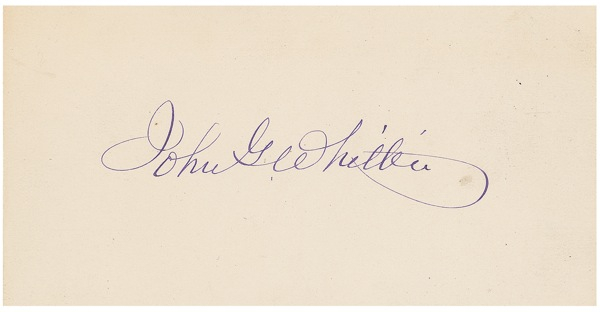 John G Whittier